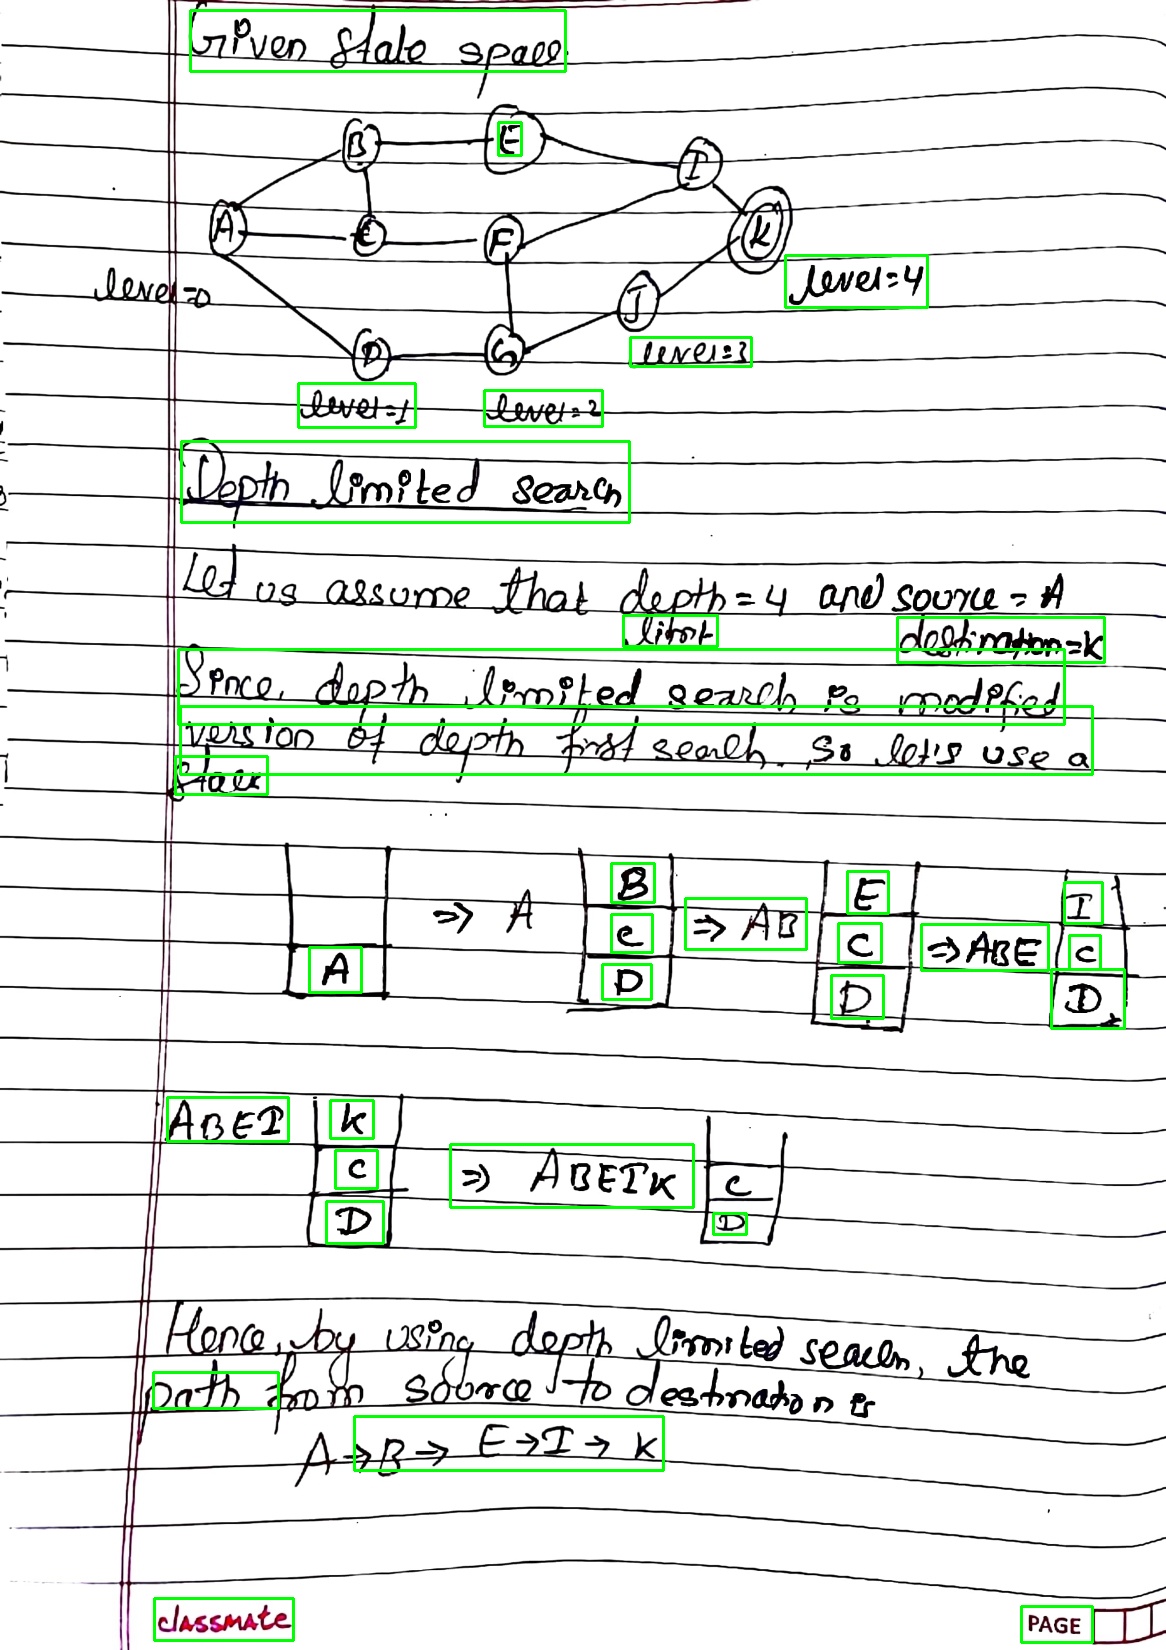 Given state space
B E I
A C F K
level=0 level=4
J
D G level=3
level=1 level=2
Depth limited search
Let us assume that depth = 4 and source = A
limit destination=K
Since, depth limited search is modified
version of depth first search. So let's use a
stack
A ⇒ A B C D ⇒ AB E C D ⇒ ABE I C D
ABEI K C D ⇒ ABEIK C D
Hence, by using depth limited search, the
path from source to destination is
A → B → E → I → K
classmate PAGE